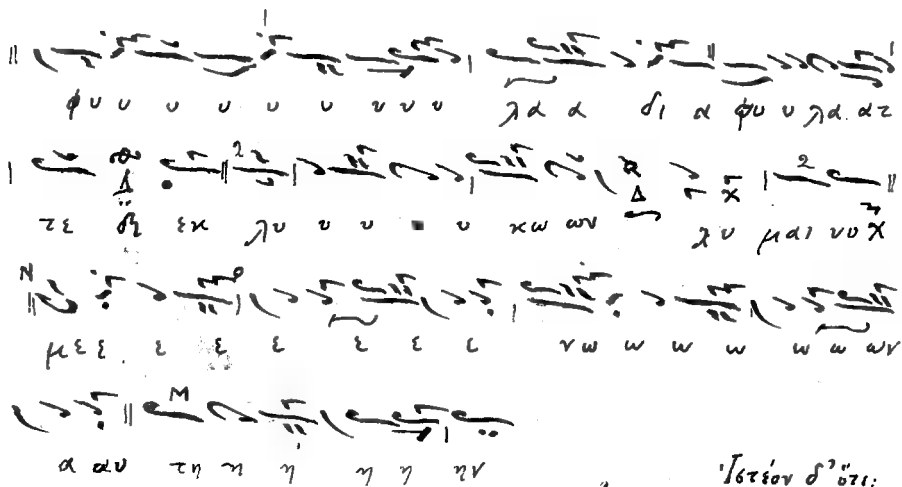 φυ υ υ υ υ υ υ υ υ λα α δι α φυ υ λα ατ
τε εκ λυ υ υ υ κω ων λυ μαι νο
με ε ε ε ε ε ε ε νω ω ω ω ω ω ων
α αυ τη η η η η ην
Ἰστέον δ' ὅτι: